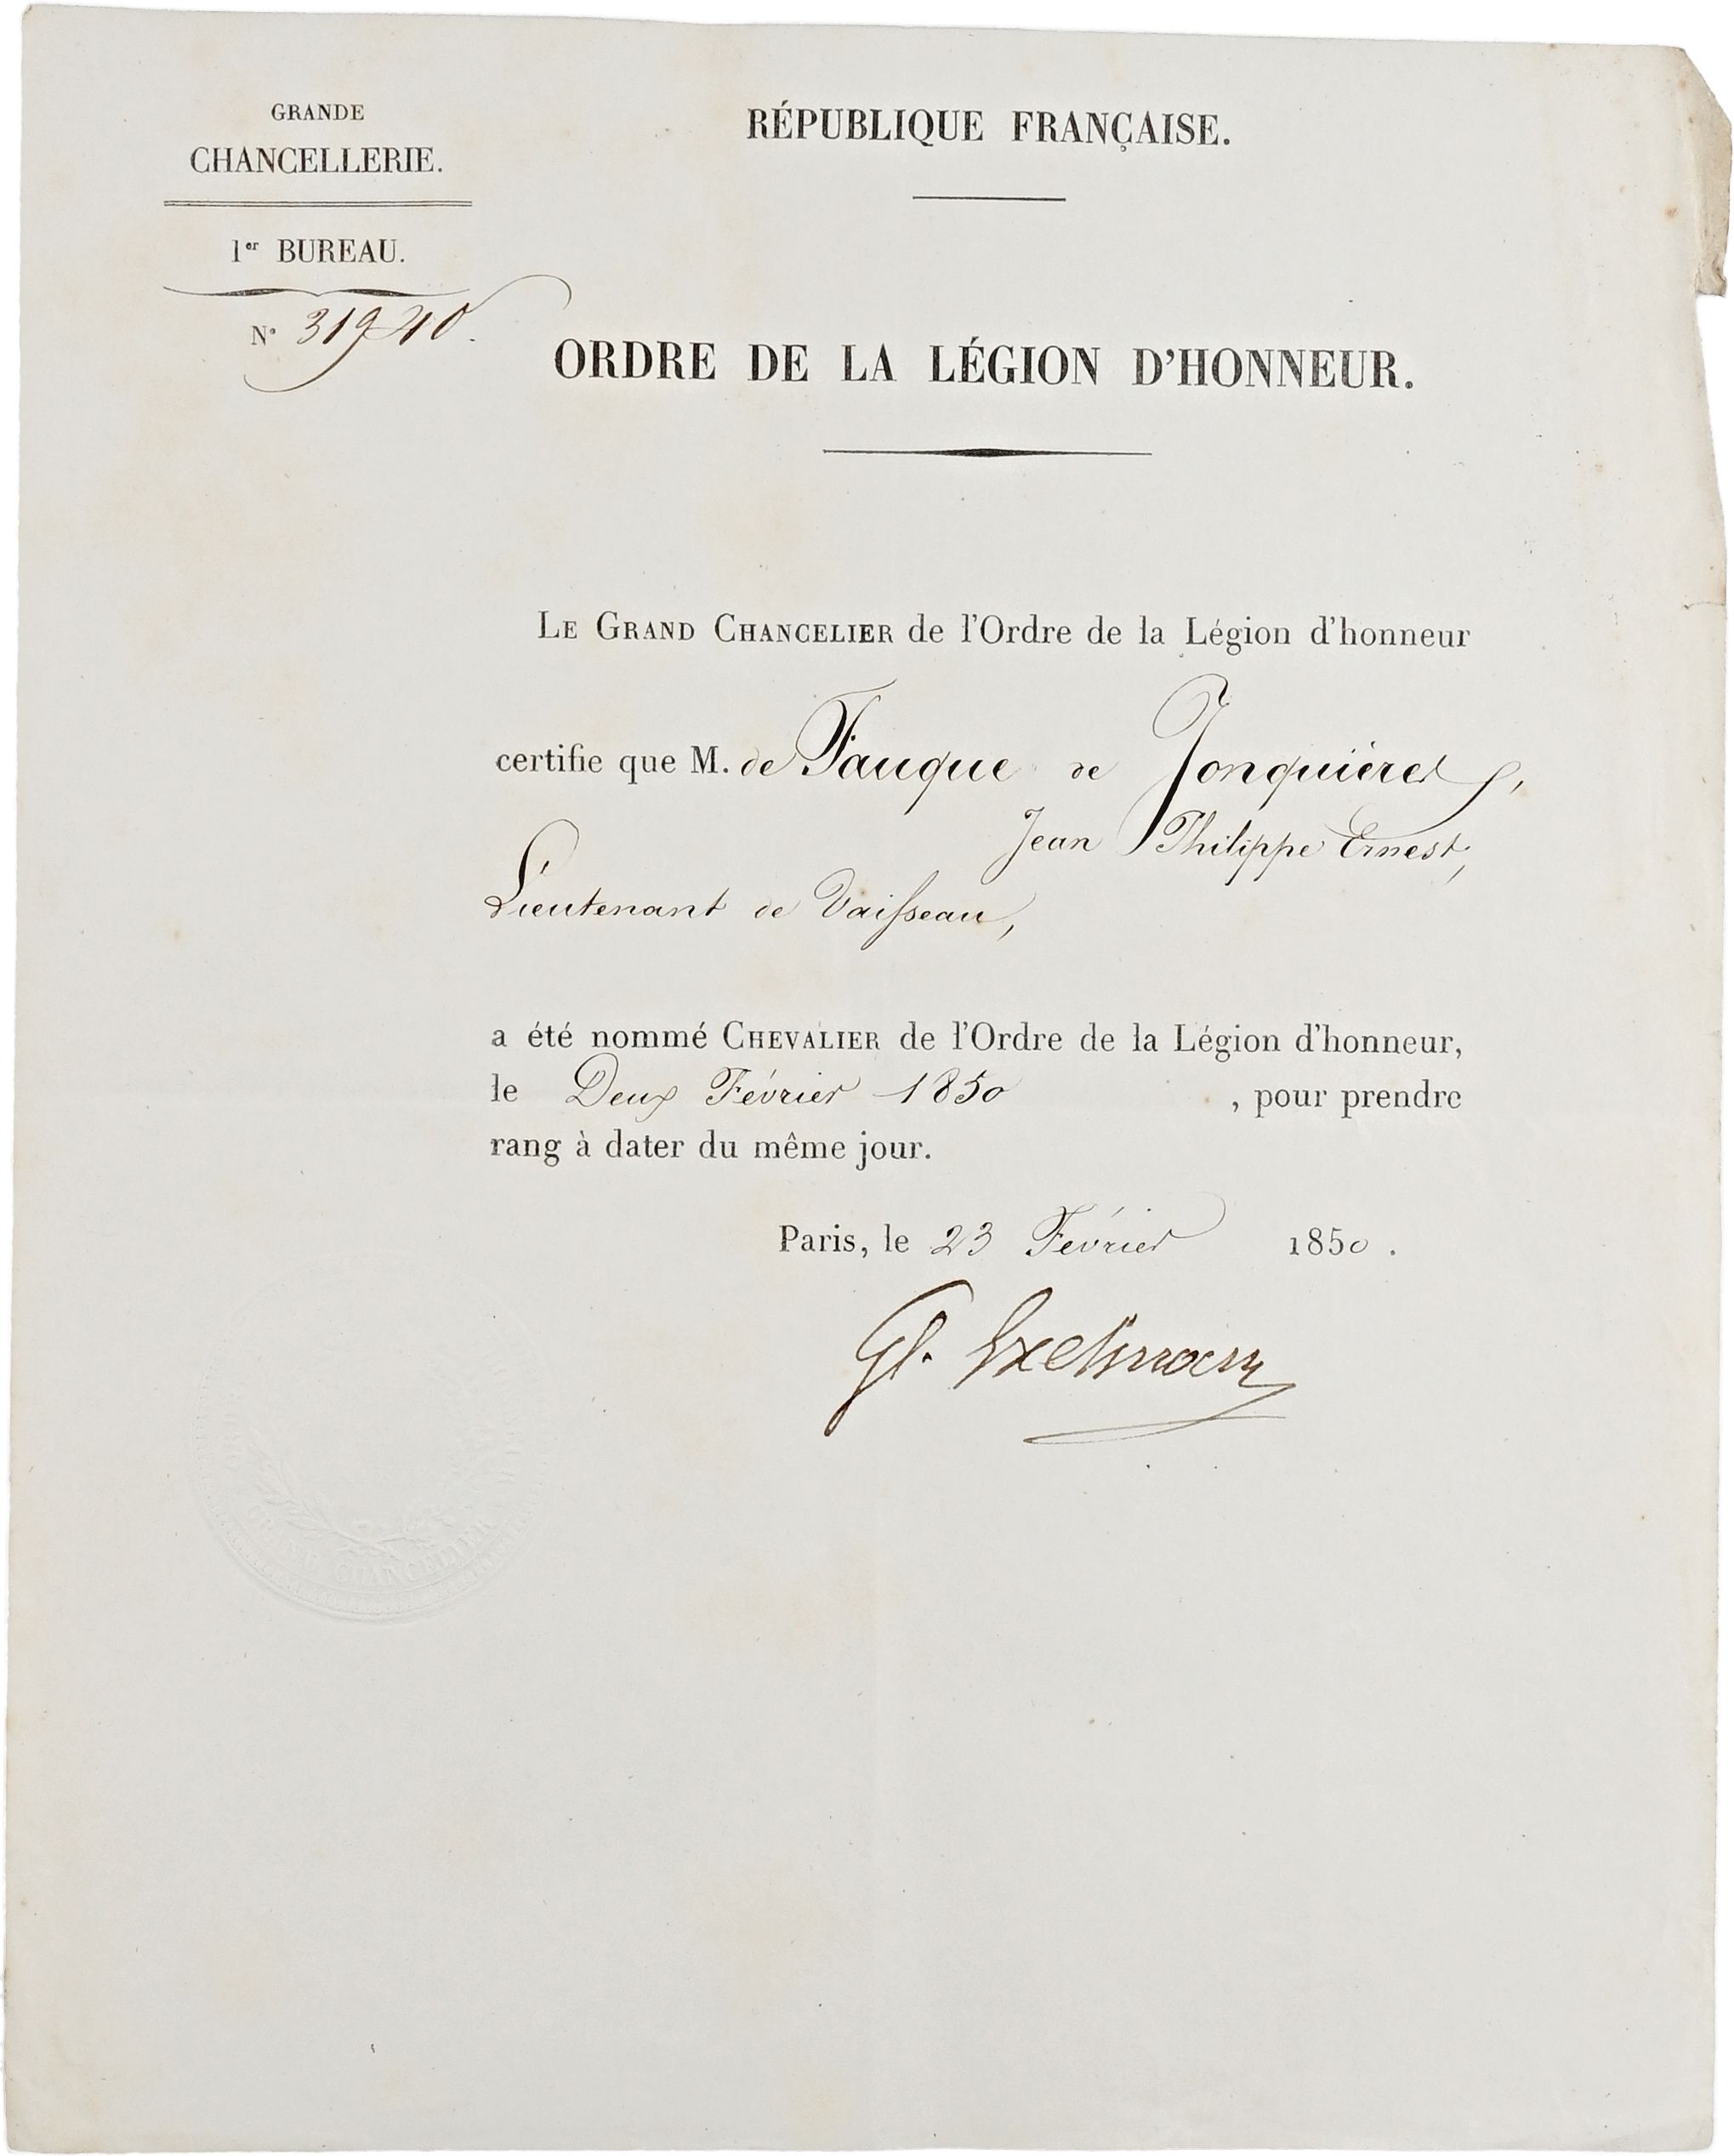 GRANDE
CHANCELLERIE.
1er BUREAU.
N° 31940.
RÉPUBLIQUE FRANÇAISE.
ORDRE DE LA LÉGION D'HONNEUR.
LE GRAND CHANCELIER de l'Ordre de la Légion d'honneur
certifie que M. de Fauque de Jonquières,
Jean Philippe Ernest,
Lieutenant de Vaisseau,
a été nommé CHEVALIER de l'Ordre de la Légion d'honneur,
le Deux Février 1850 , pour prendre
rang à dater du même jour.
Paris, le 23 Février 1850.
Gl. Exelmans
GRAND CHANCELIER